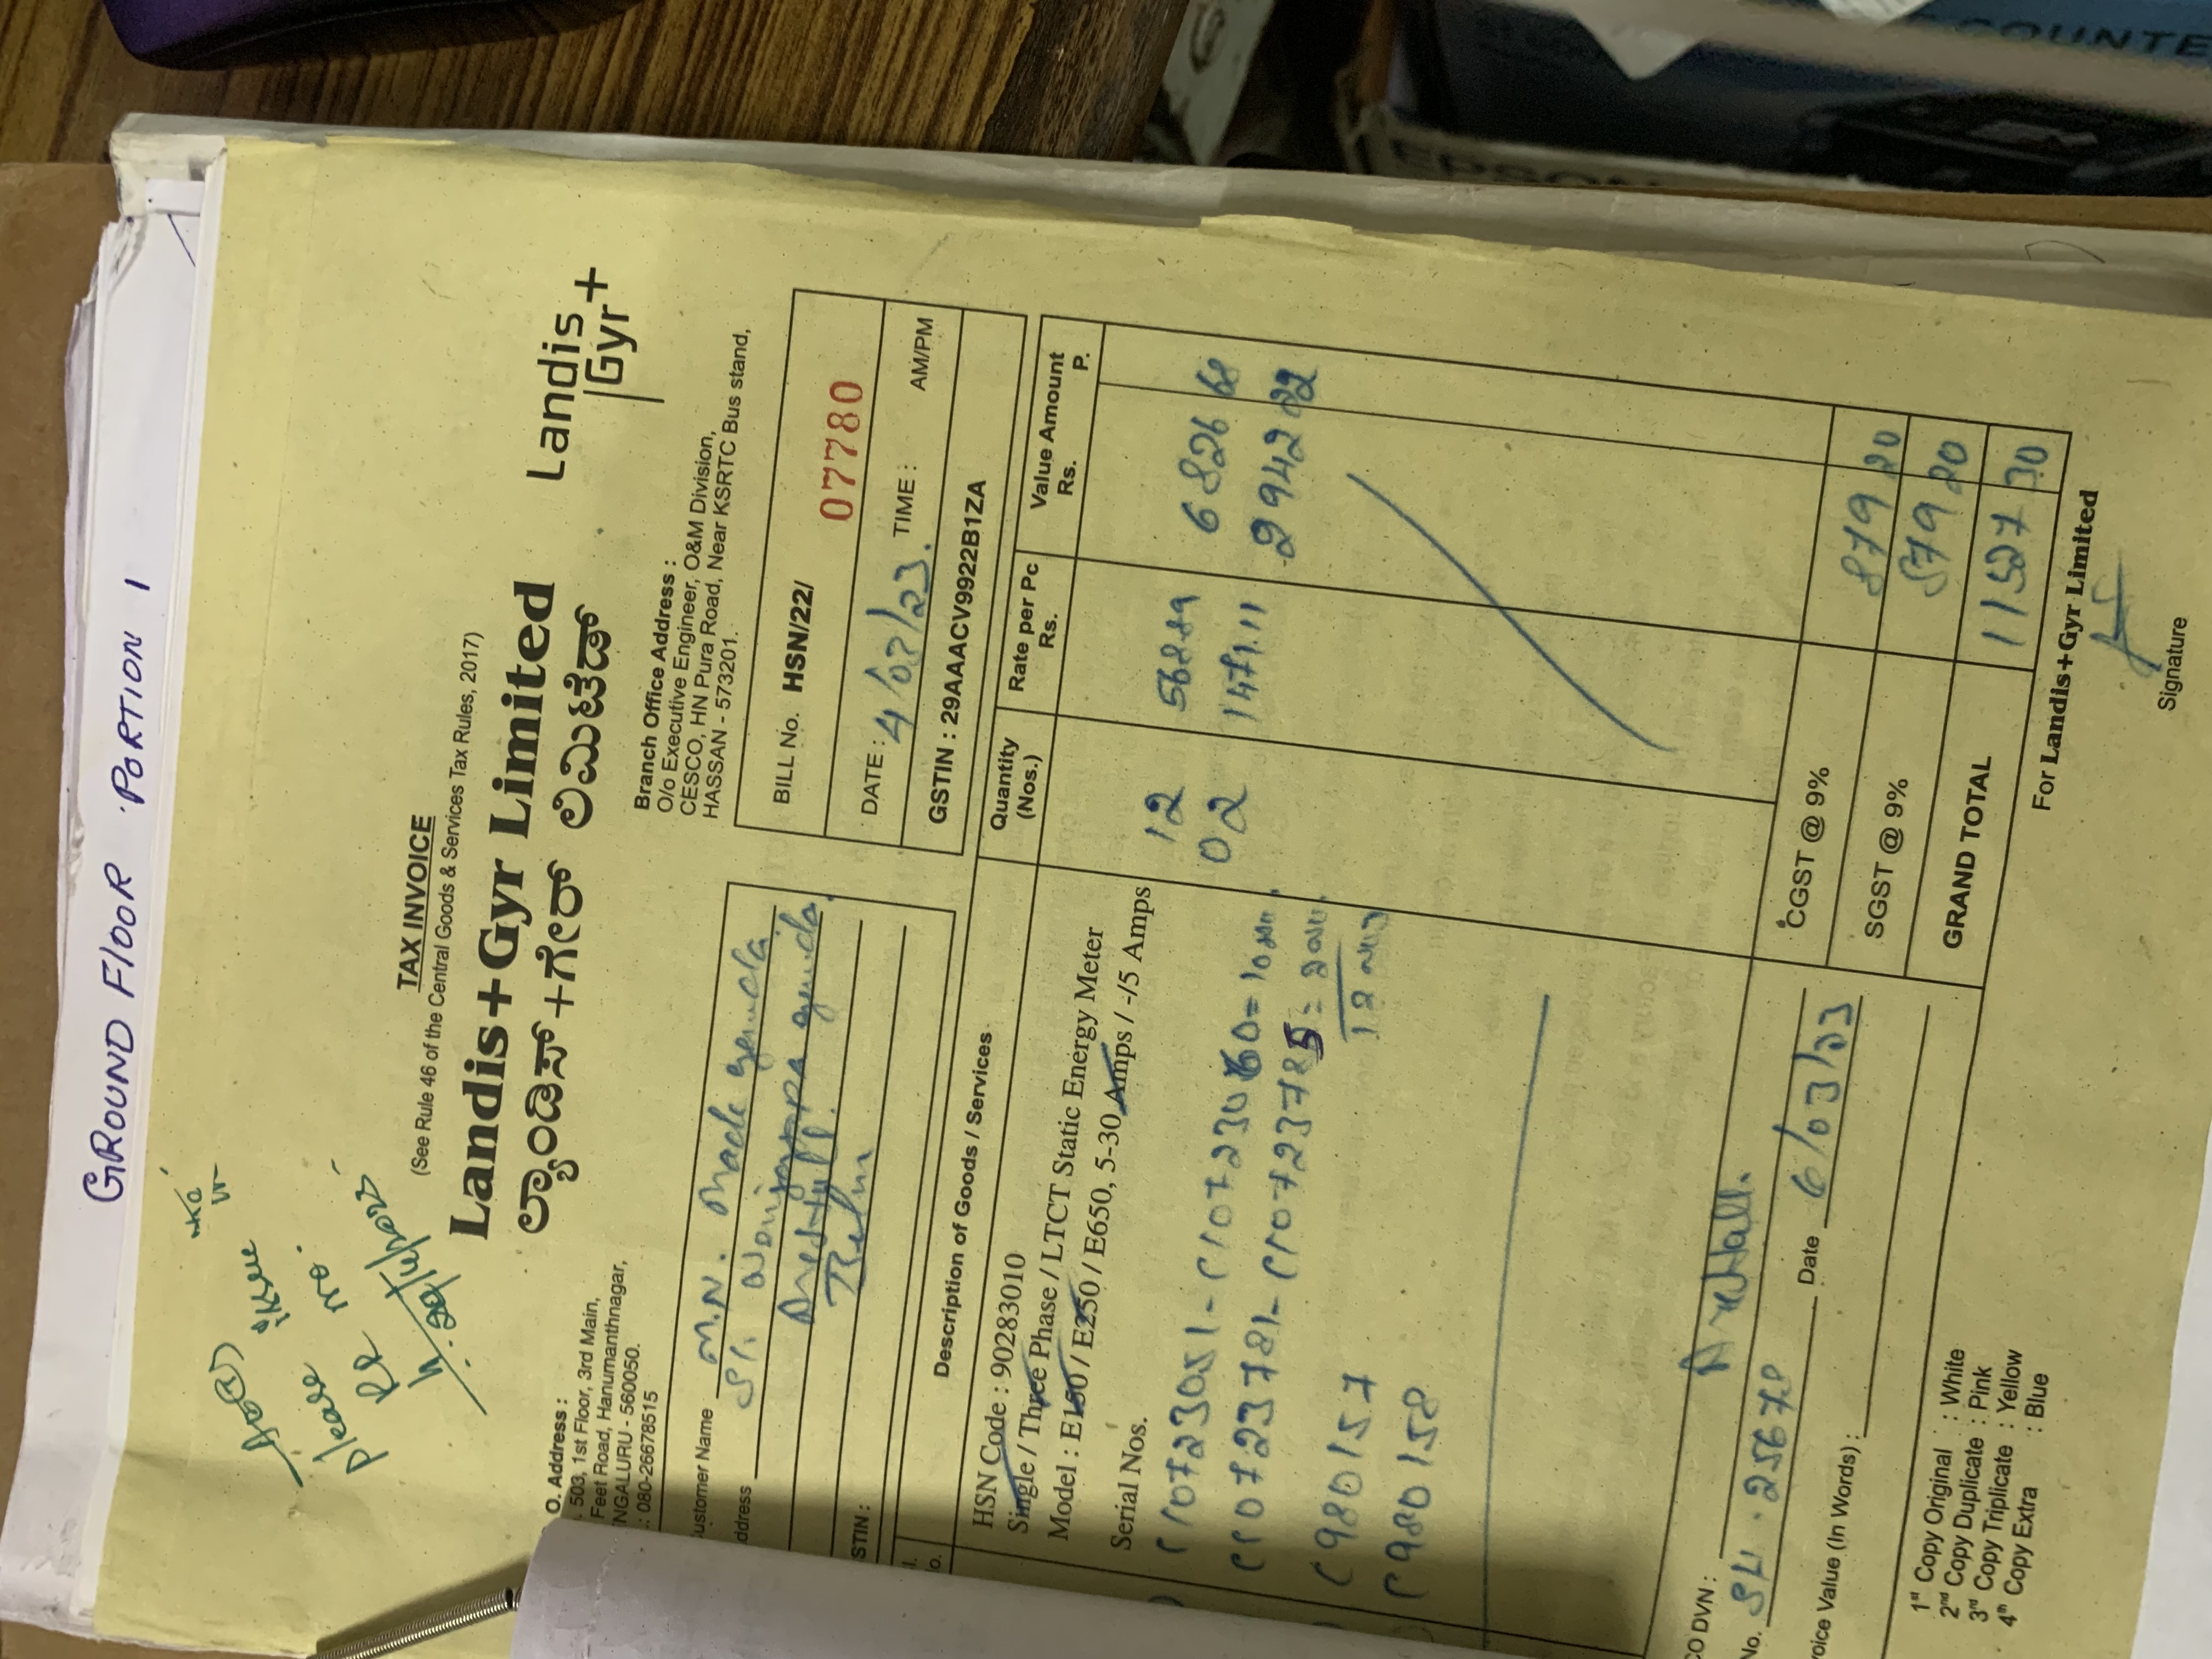 GROUND FLOOR PORTION 1
please
TAX INVOICE
(See Rule 46 of the Central Goods & Services Tax Rules, 2017)
Landis+Gyr Limited
ಲ್ಯಾಂಡಿಸ್+ಗೇರ್ ಲಿಮಿಟೆಡ್
Landis
Gyr+
O. Address :
503, 1st Floor, 3rd Main,
Feet Road, Hanumanthnagar,
NGALURU - 560050.
: 080-26678515
Branch Office Address :
O/o Executive Engineer, O&M Division,
CESCO, HN Pura Road, Near KSRTC Bus stand,
HASSAN - 573201.
ustomer Name M.N.
ddress
STIN :
BILL No. HSN/22/ 07780
DATE : 4/02/23. TIME : AM/PM
GSTIN : 29AAACV9922B1ZA
l. Description of Goods / Services Quantity Rate per Pc Value Amount
o. (Nos.) Rs. Rs. P.
HSN Code : 90283010
Single / Three Phase / LTCT Static Energy Meter
Model : E150 / E250 / E650, 5-30 Amps / -/5 Amps
Serial Nos.
12 6826 68
02 1471.11 2942 22
C980157
C980158
CO DVN :
No. 25678 Date 6/03/23
CGST @ 9% 879 20
SGST @ 9% 879 20
GRAND TOTAL 11527 30
voice Value (In Words) :
For Landis+Gyr Limited
Signature
1st Copy Original : White
2nd Copy Duplicate : Pink
3rd Copy Triplicate : Yellow
4th Copy Extra : Blue
COUNTE
EPSON